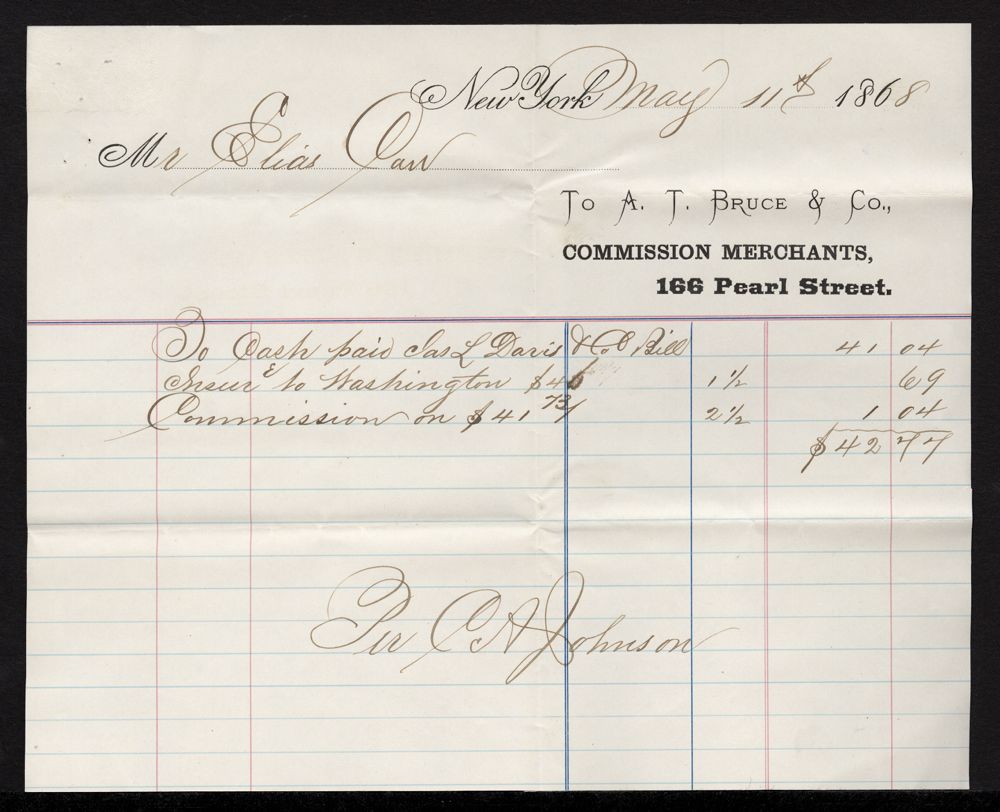 New York May 11th 1868
Mr Elias Carr
To A. T. Bruce & Co.,
COMMISSION MERCHANTS,
166 Pearl Street.
To Cash paid Jas L Davis & Co Bill 41 04
Insure to Washington $46 1½ 69
Commission on $41 73/ 2½ 1 04
$42 77
Per C A Johnson